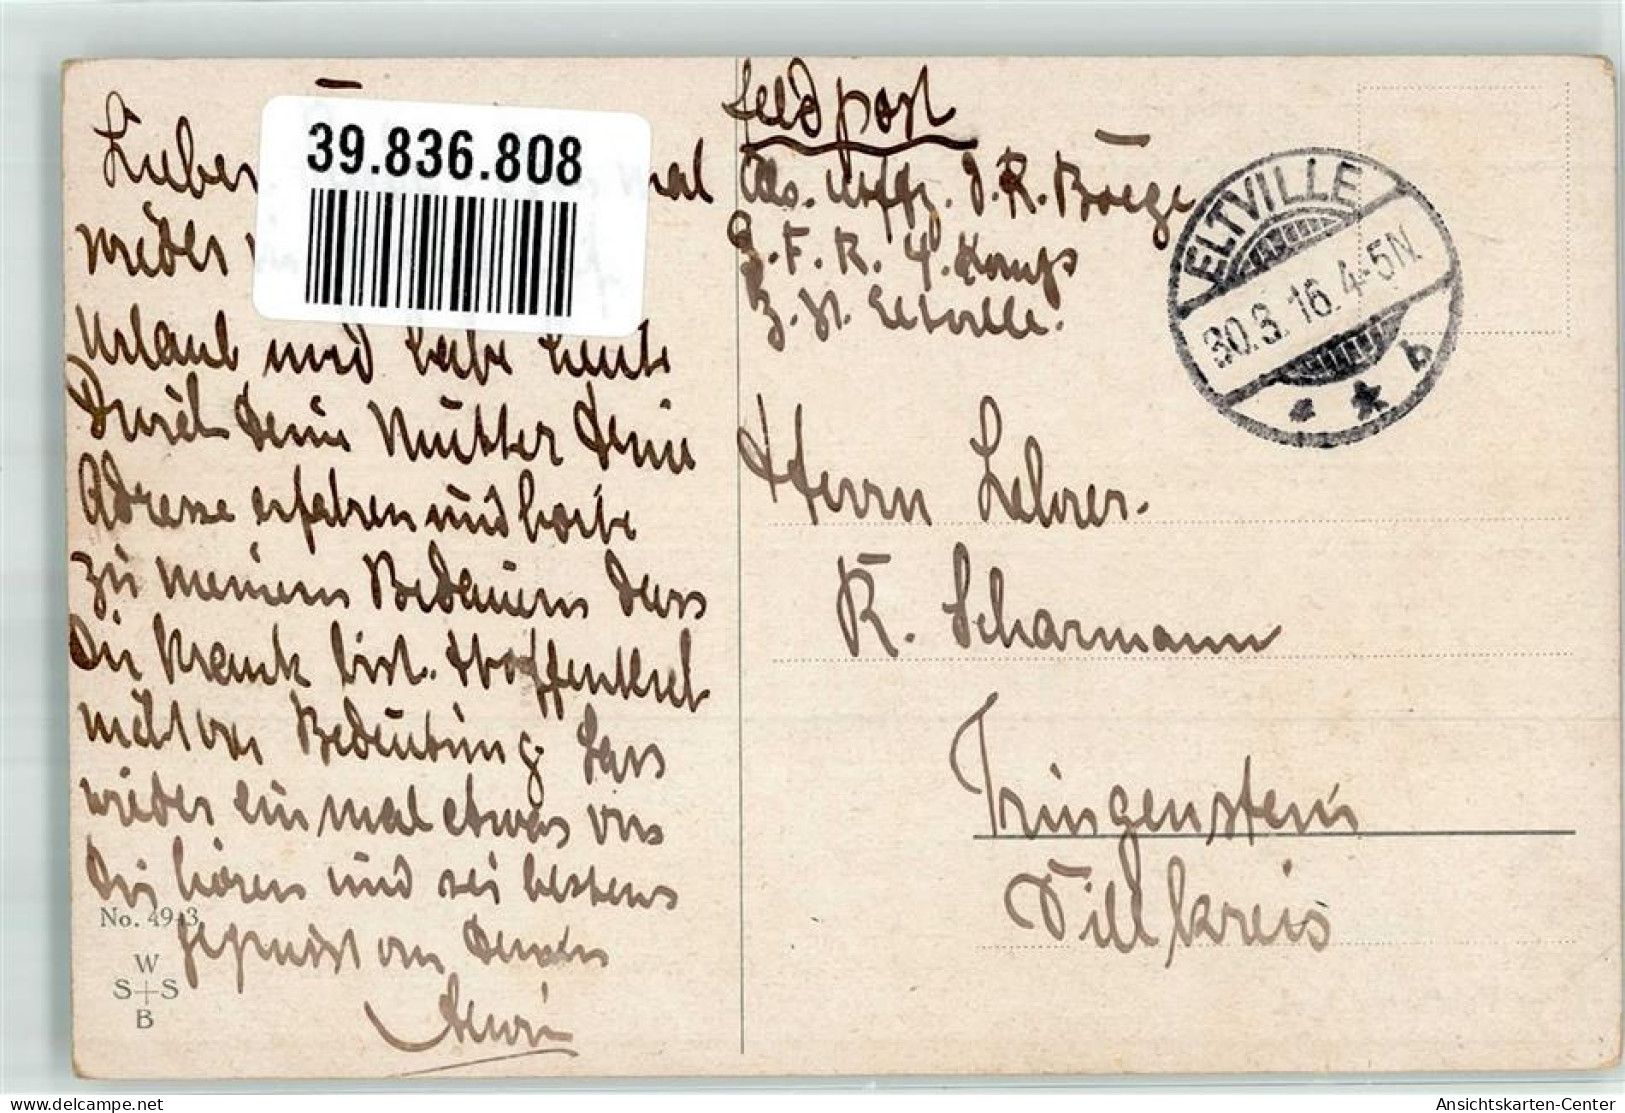 Lieber
39.836.808
mal
wieder
Urlaub und habe heute
durch Deine Mutter Deine
Adresse erfahren und hörte
zu meinem Bedauern dass
Du krank bist. Hoffentlich
nicht von Bedeutung Lass
wieder einmal etwas von
Dir hören und sei bestens
gegrüsst von Deinem
No. 49 3
W
S S
B
Feldpost
Abs. Uoffz. d. R. Böege
4. Komp
Eltville.
ELTVILLE
30.3.16.4-5N.
b
Herrn Lehrer.
K. Scharmann
Tringenstein
Dillkreis
Ansichtskarten-Center